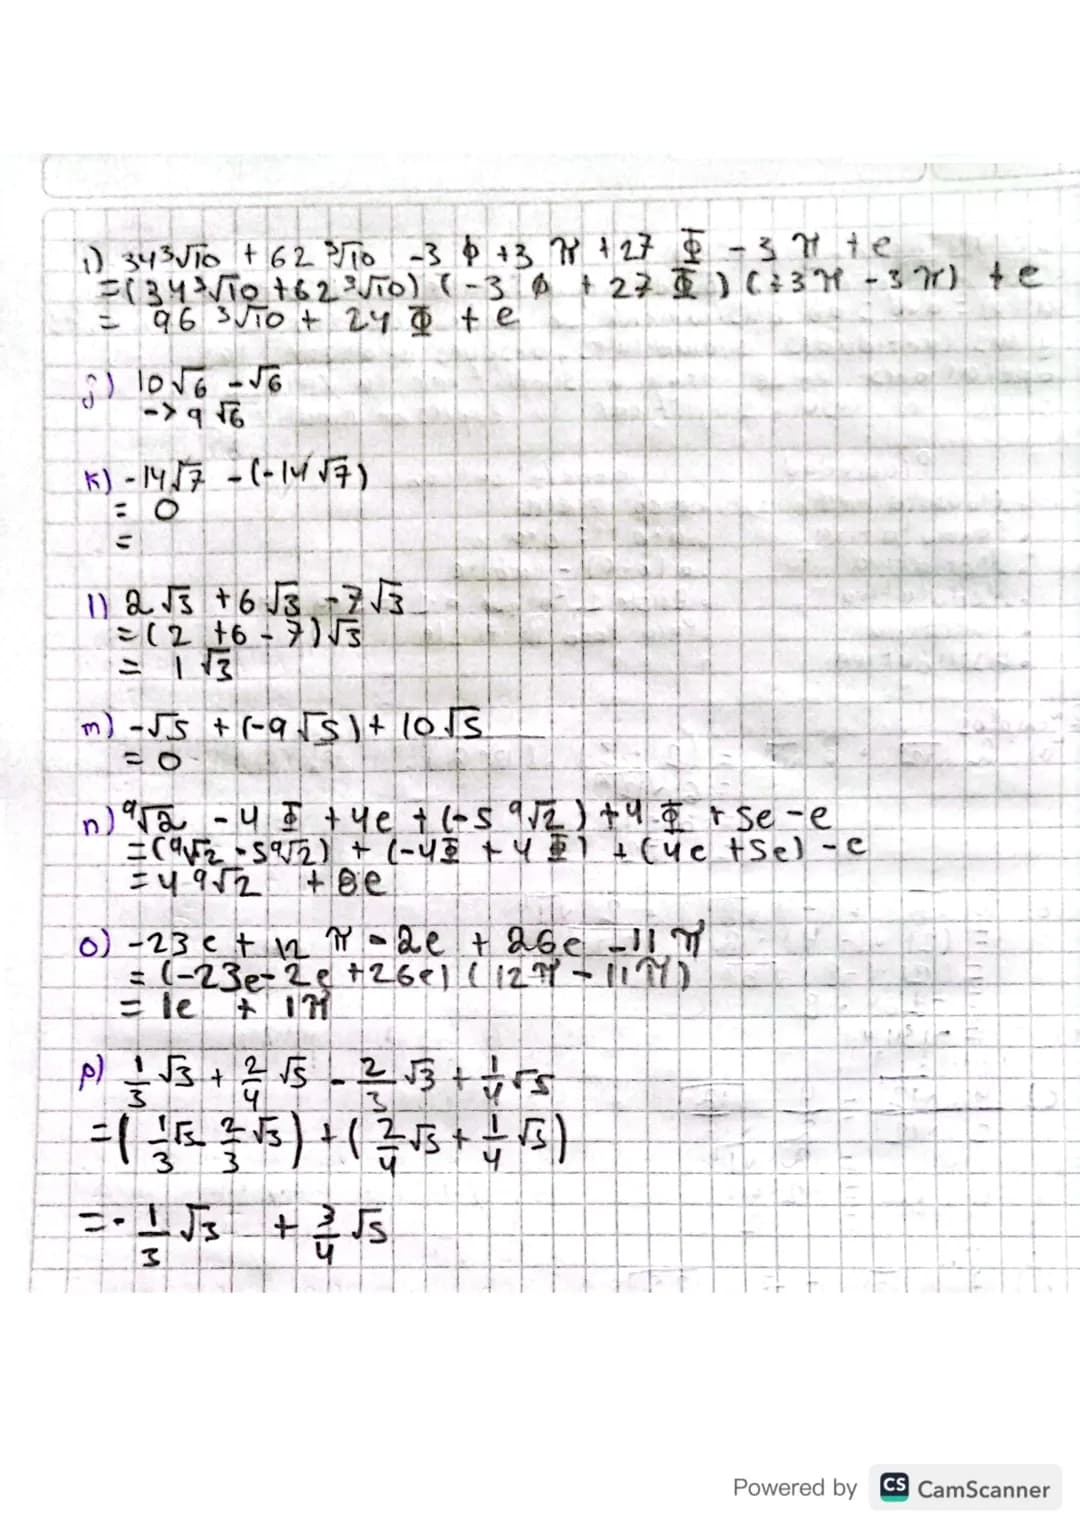 i) 34³√10 + 62 ³√10 -3 ϕ +3 π +27 Φ - 3 π + e
=(34³√10 +62³√10) (-3 ϕ + 27 Φ) (+3π - 3π) + e
= 96 ³√10 + 24 Φ + e
j) 10√6 -√6
-> 9 √6
k) -14√7 -(-14√7)
= 0
=
l) 2√3 +6√3 -7√3
=(2 +6 - 7)√3
= 1√3
m) -√5 + (-9√5)+ 10√5
= 0
n) ⁹√2 - 4 Φ + 4e + (-5 ⁹√2) +4 Φ + 5e -e
=(⁹√2 -5⁹√2) + (-4Φ + 4Φ) + (4e +5e) - e
=4 ⁹√2 + 8e
o) -23e + 12 π - 2e + 26e -11 π
= (-23e-2e +26e) (12π - 11π)
= 1e + 1π
p) 1/3 √3 + 2/4 √5 - 2/3 √3 + 1/4 √5
=(1/3 √3 - 2/3 √3) + (2/4 √5 + 1/4 √5)
=- 1/3 √3 + 3/4 √5
Powered by CS CamScanner